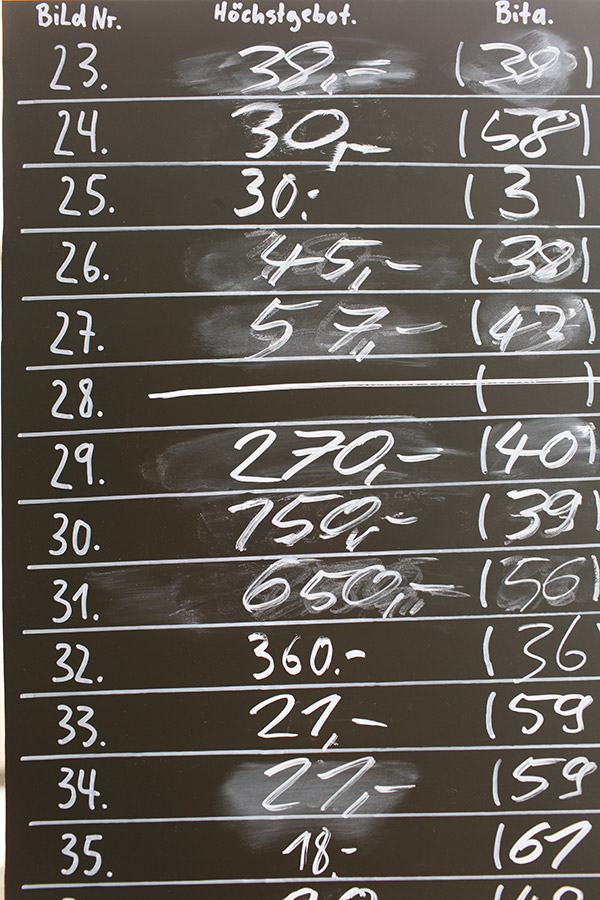 Bild Nr. Höchstgebot. Bita.
23. 38,- (38)
24. 30,- (58)
25. 30.- (3)
26. 45,- (38)
27. 57,- (43)
28. ( )
29. 270,- (40)
30. 150,- (39)
31. 650,- (56)
32. 360.- (36
33. 21,- (159
34. 21,- (159
35. 18.- (161